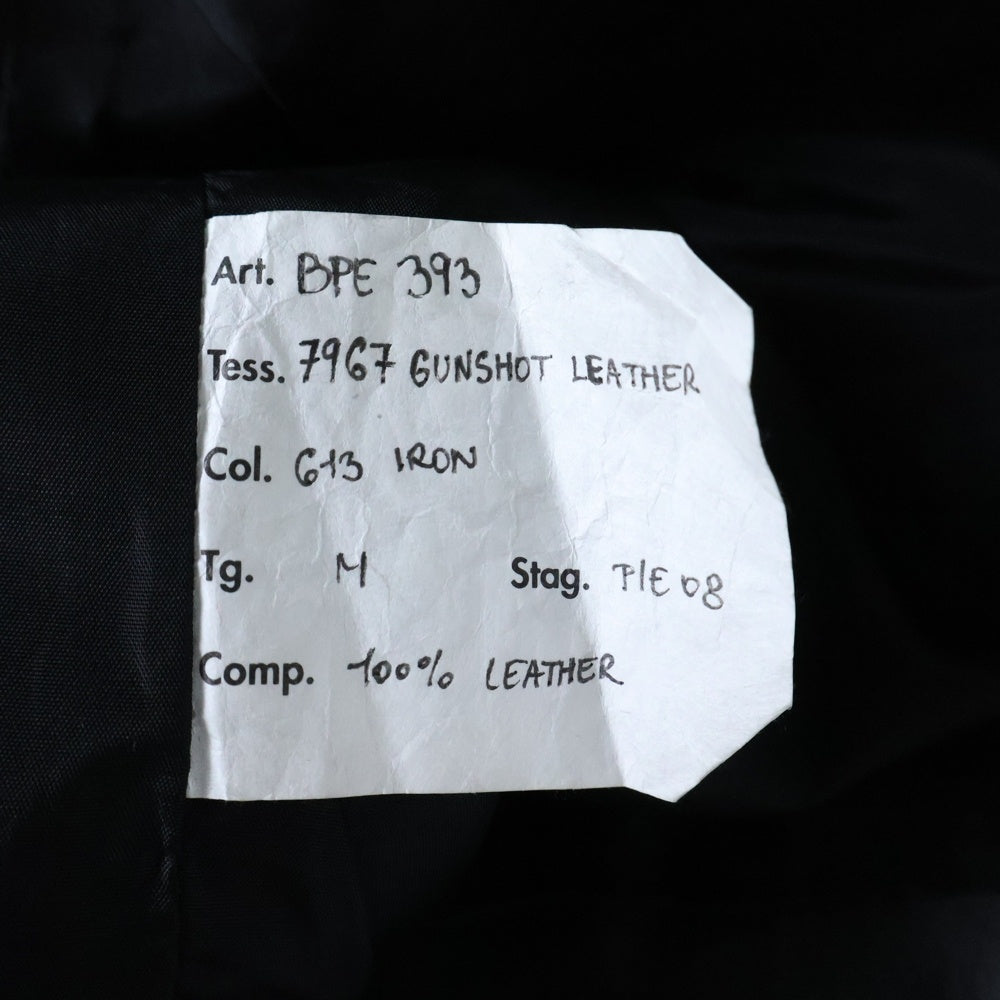 Art. BPE 393
Tess. 7967 GUNSHOT LEATHER
Col. 613 IRON
Tg. M Stag. P/E 08
Comp. 100% LEATHER